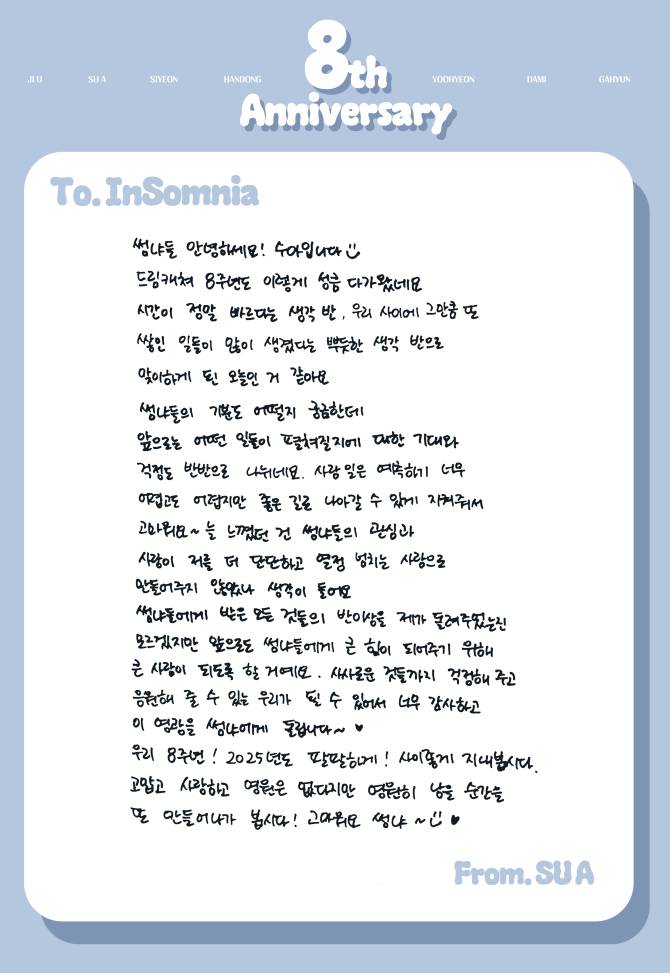 8th
JI U SU A SIYEON HANDONG YOOHYEON DAMI GAHYUN
Anniversary
To. InSomnia
썸냐들 안녕하세요! 수아입니다
드림캐쳐 8주년도 이렇게 성큼 다가왔네요
시간이 정말 빠르다는 생각 반, 우리 사이에 그만큼 또
쌓인 일들이 많이 생겼다는 뿌듯한 생각 반으로
맞이하게 된 오늘인 거 같아요
썸냐들의 기분도 어떨지 궁금한데
앞으로는 어떤 일들이 펼쳐질지에 대한 기대와
걱정도 반반으로 나뉘네요. 사랑 일은 예측하기 너무
어렵고도 어렵지만 좋은 길로 나아갈 수 있게 지켜줘서
고마워요~ 늘 느꼈던 건 썸냐들의 관심과
사랑이 저를 더 단단하고 열정 넘치는 사람으로
만들어주지 않았나 생각이 들어요
썸냐들에게 받은 모든 것들의 반이상을 제가 돌려주었는진
모르겠지만 앞으로도 썸냐들에게 큰 힘이 되어주기 위해
큰 사람이 되도록 할거예요. 사사로운 것들까지 걱정해 주고
응원해 줄 수 있는 우리가 될 수 있어서 너무 감사하고
이 영광을 썸냐에게 돌립니다~ ♥
우리 8주년! 2025년도 팔팔하게! 사이좋게 지내봅시다.
고맙고 사랑하고 영원은 없다지만 영원히 남을 순간을
또 만들어나가 봅시다! 고마워요 썸냐~ ♥
From. SU A